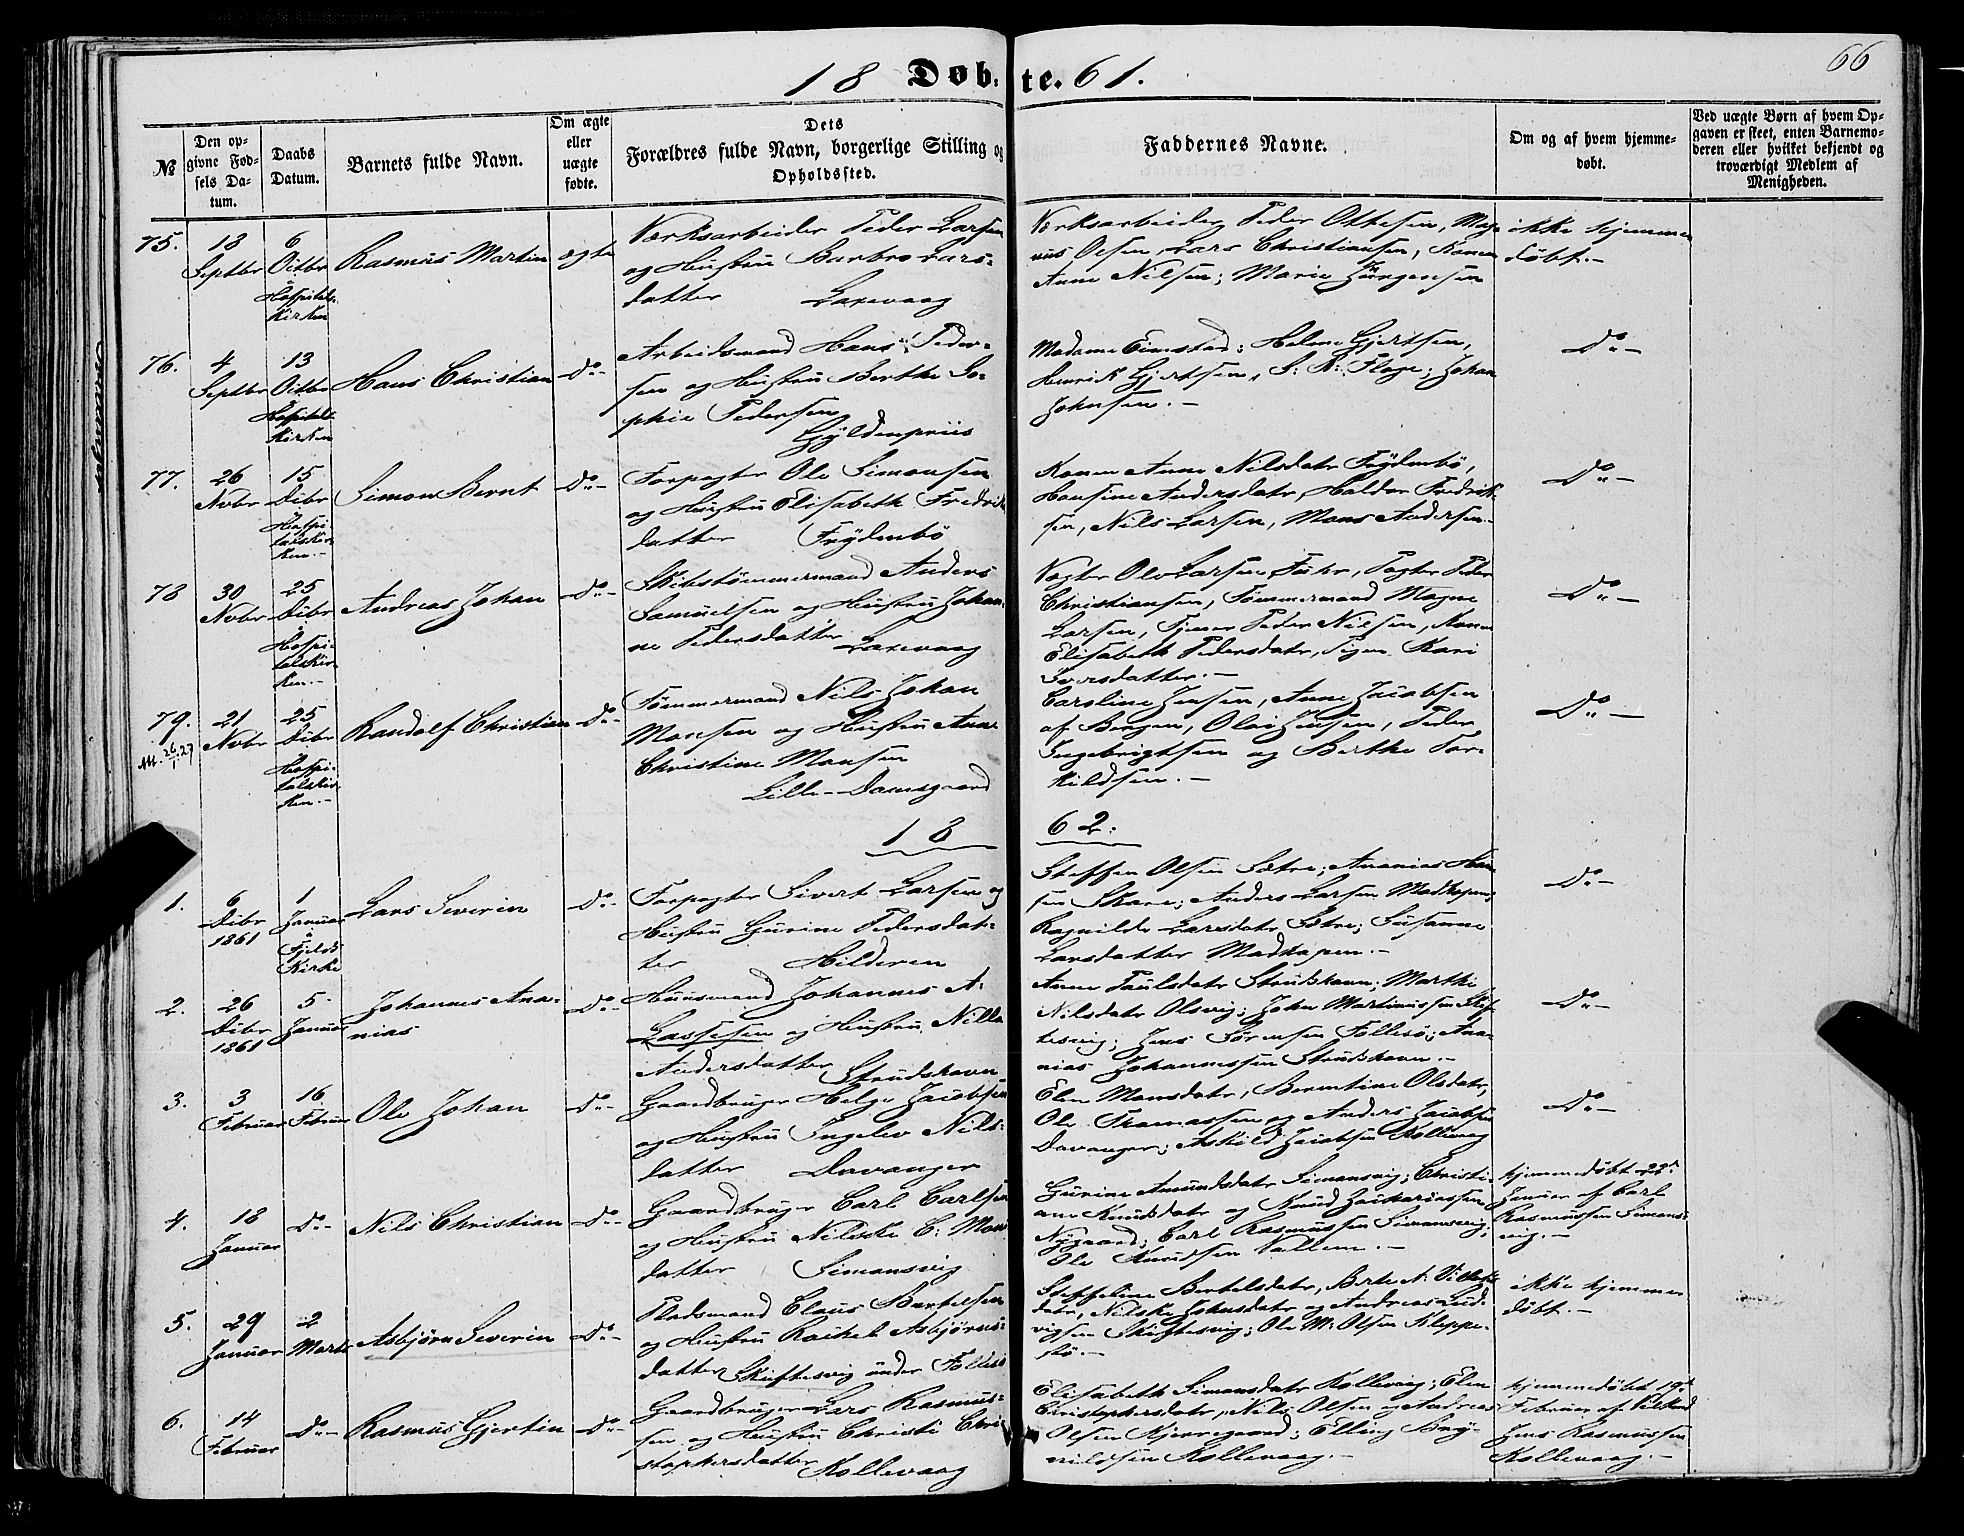 66
18 Døb- te. 61.
№
Den op-
givne Fød-
sels Da-
tum.
Daabs
Datum.
Barnets fulde Navn.
Om ægte
eller
uægte
fødte.
Dets
Forældres fulde Navn, borgerlige Stilling og
Opholdssted.
Faddernes Navne.
Om og af hvem hjemme-
døbt.
Ved uægte Børn af hvem Op-
gaven er skeet, enten Barnemo-
deren eller hvilket bekjendt og
troværdigt Medlem af
Menigheden.
75.
18
Septbr
6
Octbr
Hospitals
Kirken
Rasmus Martin
ægte
Værksarbeider Peder Larsen
og Hustru Barbro Lars-
datter Laxevaag
Værksarbeider Peder Ottesen, Mag-
nus Olsen, Lars Christiansen, Konen
Anne Nilsen; Marie Jørgensen
ikke hjemme
døbt.-
76.
4
Septbr
13
Octbr
Hospitals
Kirken
Hans Christian
Do-
Arbeidsmand Hans Peder-
sen og Hustru Berthe So-
phie Pedersen
Gyldenpriis
Madame Eimstad; Helene Gjertsen,
Henrik Gjertsen, S: K: Fløge; Johan
Johnsen.-
Do-
77.
26
Nvbr
15
Dcbr
Hospi-
talskir-
ken.-
Simon Bernt
Do-
Forpagter Ole Simonsen
og Hustru Elisabeth Fredriks
datter Frydenbø
Konen Anne Nilsdatr Frydenbø,
Hansine Andersdatr, Haldor Fredrik-
sen, Nils Larsen, Mons Andersen.-
Do-
78
30
Nvbr
25
Dcbr
Hospi-
talskir-
ken.-
Andreas Johan
Do-
Skibstømmermand Anders
Samuelsen og Hustru Johan-
ne Pedersdatter Laxevaag
Vogter Ole Larsen Fuhr, Vogter Peder
Christiansen, Tømmermand Magne
Larsen, Tjener Peder Nilsen, Konen
Elisabeth Pedersdatr, Pigen Kari
Iversdatter.-
Do-
79.
Att. 26/1.27
21
Nvbr
25
Dcbr
Hospi-
talskir-
ken.-
Randolf Christian
Do-
Tømmermand Nils Johan
Monsen og Hustru Ane
Christine Monsen
Lille-Damsgaard
Caroline Jensen, Anne Jacobsen
af Bergen, Olai Jensen, Peder
Ingebrigtsen og Berthe Tor-
kildsen.-
Do-
18 62.
1.
6
Dcbr
1861
1
Januar
Fjelds
Kirke
Lars Severin
Do-
Forpagter Sivert Larsen og
Hustru Gurine Pedersdat-
ter Hilderen
Steffen Olsen Sætre; Ananias Han-
sen Skare; Anders Larsen Madkopen;
Ragnilde Larsdatr Sætre; Susanne
Larsdatter Madkopen.-
Do-
2.
26
Dcbr
1861
5
Januar
Johannes Ana-
nias
Do-
Huusmand Johannes A.
Lassesen og Hustru Nille
Andersdatter Strudshavn
Anne Paulsdatr Strudshavn; Marthe
Nilsdatr Olsvig; John Martinussen Skif-
tesvig; Jens Sørensen Follesø; Ana-
nias Johannessen Strudshavn.-
Do-
3.
3
Februar
16
Februar
Ole Johan
Do-
Gaardbruger Helge Jacobsen
og Hustru Ingelev Nils-
datter Davanger
Elen Monsdatr, Berentine Olsdatr,
Ole Thomassen og Anders Jacobsen
Davanger; Askild Jacobsen Kollevaag
Do-
4.
18
Januar
Do-
Nils Christian
Do-
Gaardbruger Carl Carlsen
og Hustru Nilske C. Mons
datter Simonsvig
Gurine Amundsdatr Simonsvig; Christi-
ane Knudsdatr og Knud Zachariassen
Nygaard; Carl Rasmussen Simonsvig,
Ole Knudsen Vallem.-
hjemmedøbt 22de
Januar af Carl
Rasmussen Simons-
vig.-
5.
29
Januar
2
Marts
Asbjørn Severin
Do-
Pladsmand Claus Bertelsen
og Hustru Rachel Asbjørns-
datter Skiftesvig under Follesø
Steffeline Bertelsdatr, Berte N:
datr, Nilske Johnsdatr og Andreas Lud-
vigsen Skiftesvig; Ole M: Olsen Kleppe-
stø.-
ikke hjemme
døbt.-
6.
14
Februar
Do-
Rasmus Gjertin
Do-
Gaardbruger Lars Rasmus-
sen og Hustru Christi Chri-
stophersdatter Kollevaag
Elisabeth Simonsdatr Kollevaag; Elen
Christophersdatr, Nils Olsen og Andreas
Olsen Kjerregaard; Elling Bry-
nildsen Kollevaag.-
hjemmedøbt 19de
Februar af
Jens Rasmussen
Kollevaag.-